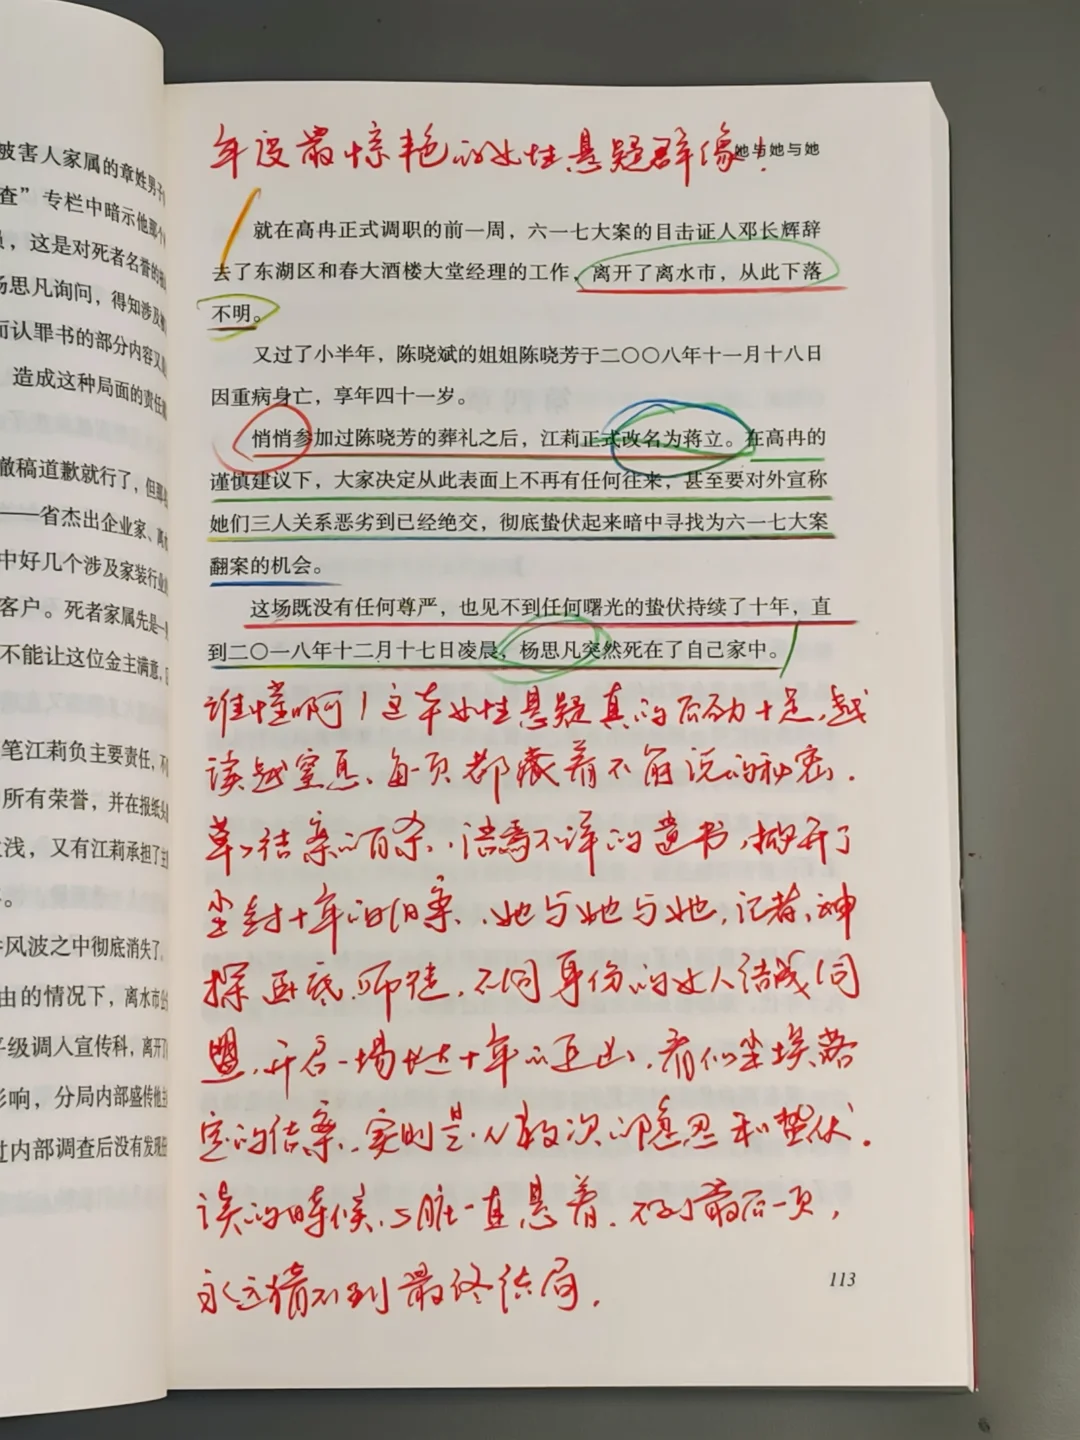 被害人家属的章姓男子
查”专栏中暗示他那个
，这是对死者名誉的
杨思凡询问，得知涉及
而认罪书的部分内容又
造成这种局面的责任
撤稿道歉就行了，但那
——省杰出企业家、离
中好几个涉及家装行业
客户。死者家属先是一
不能让这位金主满意，
笔江莉负主要责任，不
所有荣誉，并在报纸头
浅，又有江莉承担了主
。
风波之中彻底消失了。
由的情况下，离水市公
平级调入宣传科，离开了
影响，分局内部盛传他
过内部调查后没有发现
年度最惊艳的女性悬疑群像！
她与她与她
就在高冉正式调职的前一周，六一七大案的目击证人邓长辉辞
去了东湖区和春大酒楼大堂经理的工作，离开了离水市，从此下落
不明。
又过了小半年，陈晓斌的姐姐陈晓芳于二〇〇八年十一月十八日
因重病身亡，享年四十一岁。
悄悄参加过陈晓芳的葬礼之后，江莉正式改名为蒋立。在高冉的
谨慎建议下，大家决定从此表面上不再有任何往来，甚至要对外宣称
她们三人关系恶劣到已经绝交，彻底蛰伏起来暗中寻找为六一七大案
翻案的机会。
这场既没有任何尊严，也见不到任何曙光的蛰伏持续了十年，直
到二〇一八年十二月十七日凌晨，杨思凡突然死在了自己家中。
谁懂啊！这本女性悬疑真的后劲十足，越
读越窒息、每一页都藏着不能说的秘密．
草草结案的自杀、语焉不详的遗书，掀开了
尘封十年的旧案、她与她与她，记者、神
探、卧底、师徒，不同身份的女人结成同
盟，开启一场长达十年的追凶，看似尘埃落
定的结案，实则是无数次的隐忍和蛰伏．
读的时候，心脏一直悬着，不到最后一页，
永远猜不到最终结局．
113